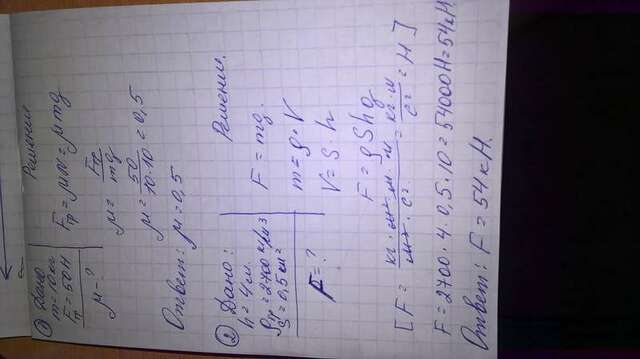 ① Дано
m = 10 кг
Fтр = 50Н
μ - ?
Решение
Fтр = μN = μmg
μ = Fтр / mg
μ = 50 / 10·10 = 0,5
Ответ: μ = 0,5
② Дано:
h = 4 м.
ρгр = 2700 кг/м3
S = 0,5 см2
F = ?
Решение.
F = mg.
m = ρ · V
V = S · h
F = ρShg
= кг·м / с2 = Н ]
F = 2700 · 4 · 0,5 · 10 = 54000Н = 54кН
Ответ: F = 54 кН.